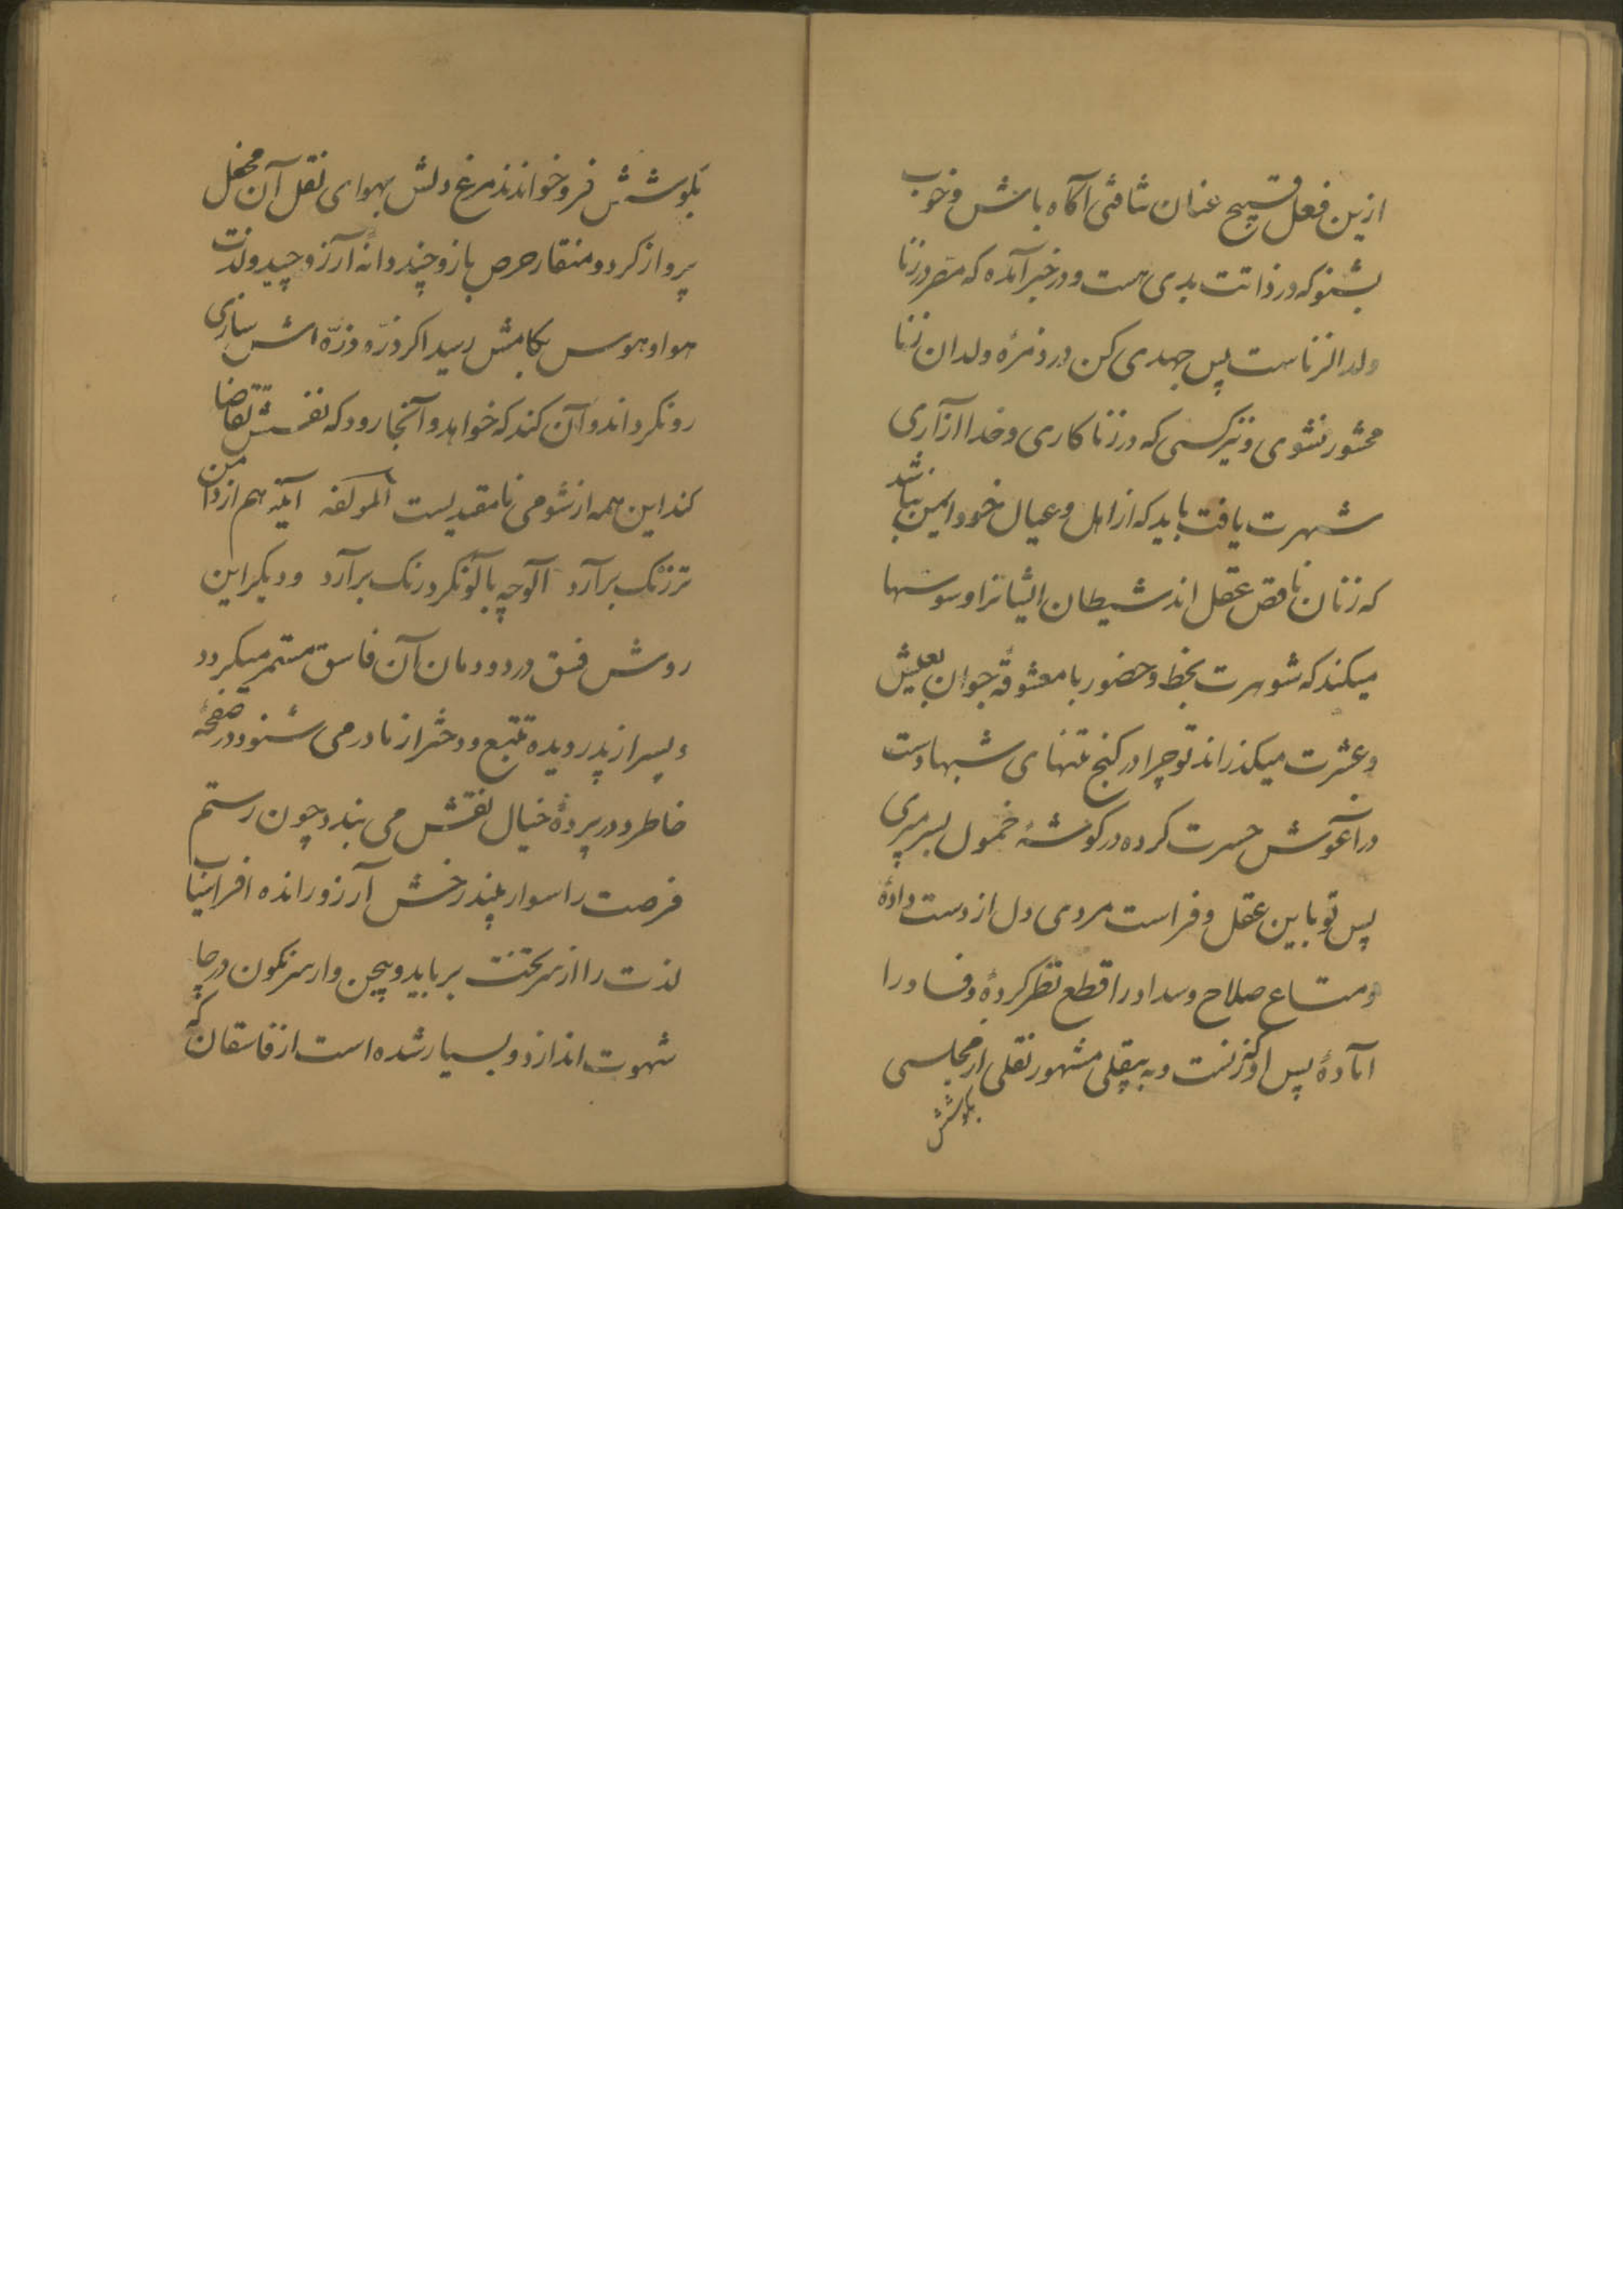 ازین فعل قبیح عنان تافتی آکاه باش و خوب
بشنو که در ذاتت بدی هست و در خبر آمده که مصر در زنا
ولد الزناست پس جهدی کن در زمرهٔ ولدان زنا
محشور نشوی و نیز کسی که در زناکاری و خدا آزاری
شهرت یافت باید که از اهل و عیال خود ایمن نباشد
که زنان ناقص عقل اند شیطان ایشانرا وسوسها
میکند که شوهرت بحظ و حضور با معشوقهٔ جوان بعیش
و عشرت میکذراند تو چرا در کنج تنهای شبها دست
در آغوش حسرت کرده در کوشهٔ خمول بسر میبری
پس تو باین عقل و فراست مردی دل از دست دادهٔ
و متاع صلاح و سداد را قطع نظر کردهٔ و فساد را
آمادهٔ پس او که زنست و به بیعقلی مشهور نقلی از مجلسی
بکوشش
بکوشش فرو خواندند مرغ دلش بهوای نقل آن محفل
پرواز کرد و منقار حرص باز و چند دانهٔ آرزو چید و لذت
هوا و هوس بکامش رسید اکر ذره ذره اش سازی
رو نکرداند و آن کند که خواهد و آنجا رود که نفسش تقاضا
کند این همه از شومی نامقیدیست لمولفه آینه هم از دامن
تر زنک برآرد آلوچه بآلو نکرد رنک برآرد و دیکر این
روش فسق در دودمان آن فاسق مستمر میکردد
و پسر از پدر دیده تتبع و دختر از مادر می شنود در صفحهٔ
خاطر و در پردهٔ خیال نقش می بندد چون رستم
فرصت را سوار بیند رخش آرزو رانده افراسیاب
لذت را از سر تخت برباید و بیجن وار سرنکون در چاه
شهوت اندازد و بسیار شده است از فاسقان که